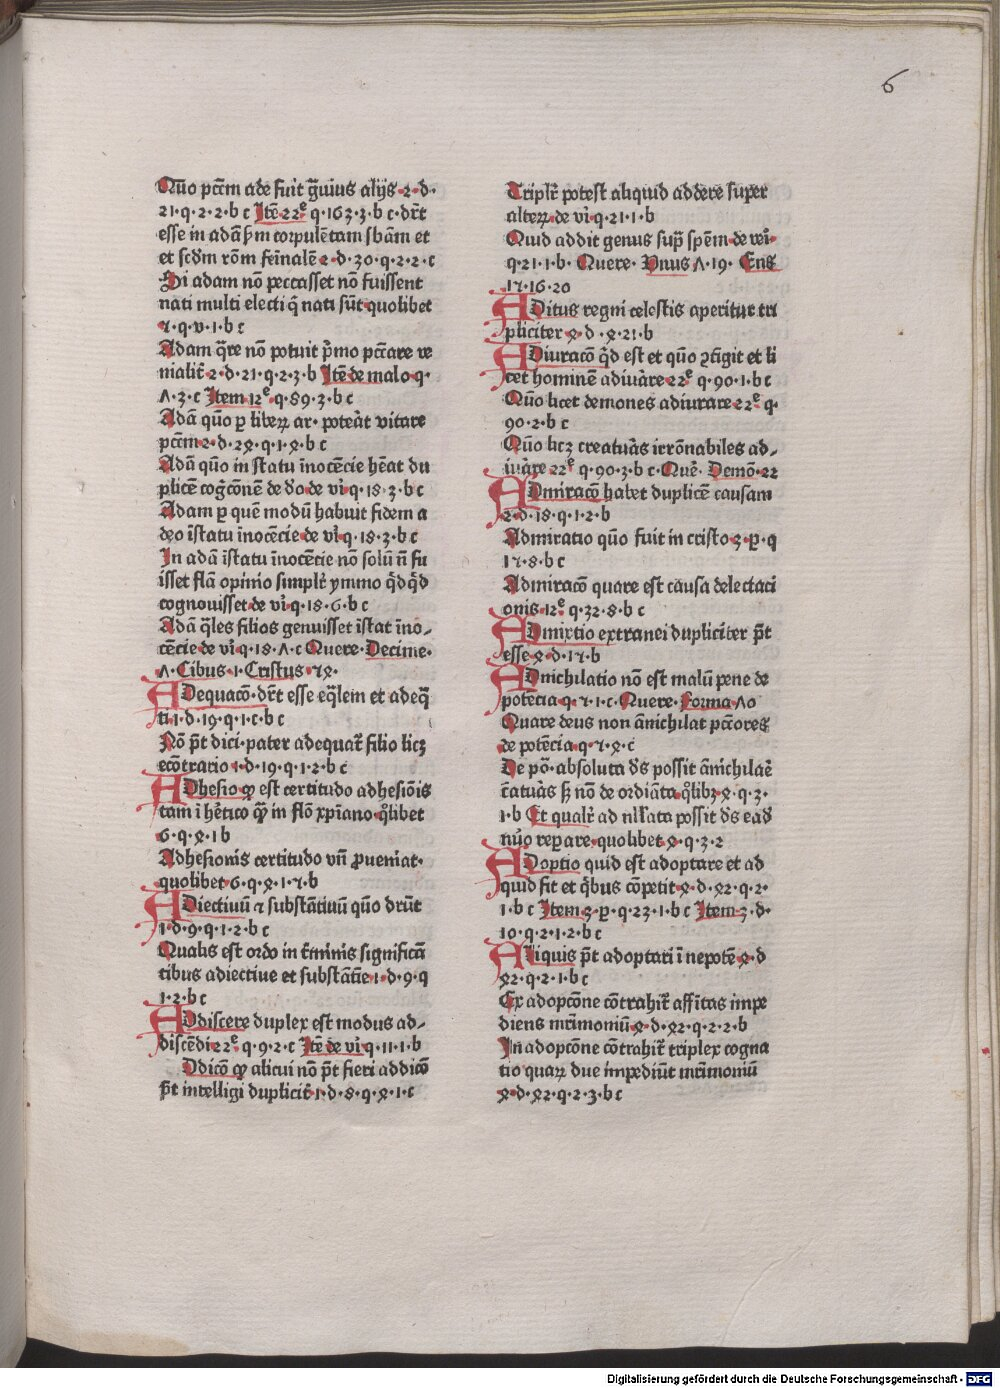 6
Quō pctm̄ ade fuit gͣuius alijs·2·d·
21·q·2·2·b c Itē 22ͤ q·163·3·b c·drt̄
esse in adā ẜm corpulētam sbāȝ et
et scdm̄ rōm seīnalē 2·d·30·q·2·2·c
Si adam nō peccasset nō fuissent
nati multi electi q̄ nati sūt quolibet
7·q·v·1·b c
Adam q̄re nō potuit p̄mo pctāre ve
nialit̄ 2·d·21·q·2·3·b Itē de malo q·
Λ·3·c Item 12ͤ q·89·3·b c
Adā quō ꝑ liberꝝ ar· poteāt vitare
pctm̄ 2·d·28·q·1·8·b c
Adā quō in statu īnocēcie hēat du
plicē coḡcōnē de do de vī q·18·3·b c
Adam ꝑ quē modū habuit fidem a
deo īstatu īnocēcie de vī q·18·3·b c
In adā īstatu īnocēcie nō solū n̄ fu
isset flā opinio simplr̄ ymmo qͥdqͥd
cognouisset de vī q·18·6·b c
Adā qͣles filios genuisset īstat īno-
cēcie de vī q·18·Λ·c Quere·Decime·
Λ·Cibus·1·Cristus·78·
ADequacō·drt̄ esse eqͣlem et adeq̄
ti·1·d·19·q·1·c·b c
Nō pt̄ dici·pater adequat̄ filio licꝫ
ecōtrario 1·d·19·q·1·2·b c
ADhesio ꝙ est certitudo adhesiōis
tam ī hētico ꝙͣ in flō xp̄iano·qͦlibet
6·q·8·1 b
Adhesionis certitudo vn̄ ꝓueniat·
quolibet 6·q·8·1·7·b
ADiectiuū ⁊ substātiuū quō drūt
1·d·9·q·1·2·b c
Qualis est ordo in t̄minis significā
tibus adiectiue et substātīe 1·d·9·q
1·2·b c
ADdiscere duplex est modus ad-
discēdi 22ͤ q·9·2·c Itē de vī q·11·1·b
Ddicō ꝙ alicui nō pt̄ fieri addicō
pt̄ intelligi duplicit̄ 1·d·8·q·8·1·c
Triplr̄ potest aliquid addere super
alterꝝ de vī q·21·1·b
Quid addit genus sup̄ spēm de veī·
q·21·1·b· Quere· Vnus Λ·19· Ens
17·16·20
ADitus regni celestis aperitur tri
pliciter 8·d·8·21·b
ADiuracō qͥd est et quō ꝯtīgit et li
cet hominē adiuāre 22ͤ q·90·1·b c
Quō licet demones adiurare 22ͤ q·
90·2·b c
Quō licꝫ creatuas irrōnabiles ad-
iuāre 22ͤ q·90·3·b c·Quē· Demō·22
ADmiracō habet duplicē causam
2·d·18·q·1·2·b
Admiratio quō fuit in cristo 3·p·q
17·8·b c
Admiracō quare est causa delectaci
onis 12ͤ q·32·8·b c
ADmixtio extranei dupliciter pt̄
esse 8·d·17·b
ADnichilatio nō est malū pene de
potēcia q·7·1·c·Quere·Forma Λ0
Quare deus non ānichilat pctōres
de potēcia q·7·8·c
De pō·absoluta ds̄ possit ānichilar̄
c̄atuas sꝫ nō de ordīāta qͦlibꝫ 8·q·3·
1·b Et qualr̄ ad nīlata possit ds̄ ead̄
nūo reꝑare·quolibet 8·q·3·2
ADoptio quid est adoptare et ad
quid fit et qͥbus cōpetit 8·d·82·q·2·
1·b c Item 3·p·q·23·1·b c Item·3·d·
10·q·2·1·2·b c
ALiquis pt̄ adoptari ī nepotē 8·d
82·q·2·1·b c
Ex adopcōne cōtrahit̄ affitas impe
diens mrimoniū 8·d·82·q·2·2·b
In adopcōne cōtrahit̄ triplex cogna
tio quaꝝ due impediūt mrimoniū
8·d·82·q·2·3·b c
Digitalisierung gefördert durch die Deutsche Forschungsgemeinschaft - DFG